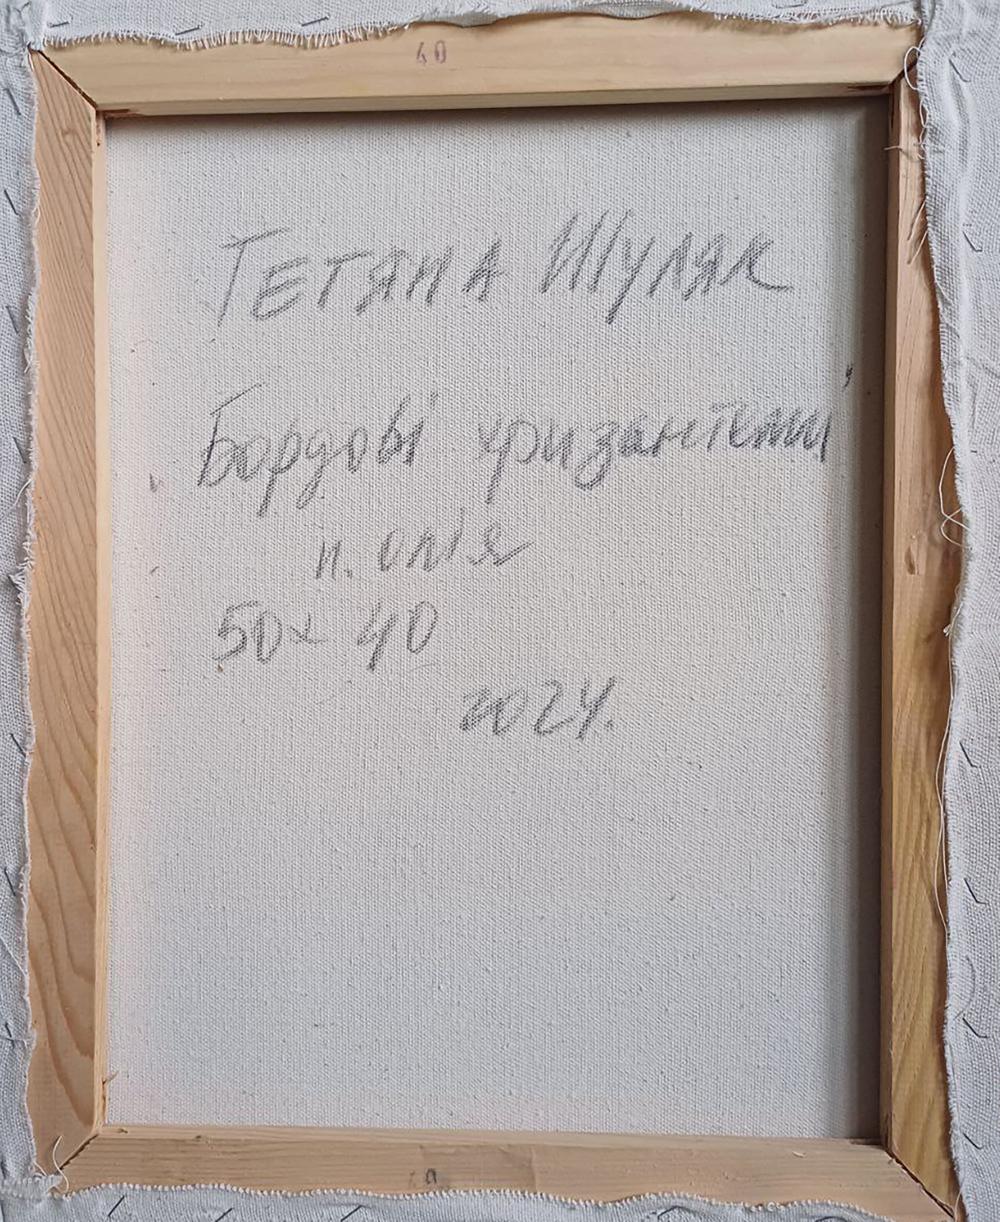 40
Тетяна Шуляк
"Бордові хризантеми"
п. олія
50х 40
2024.